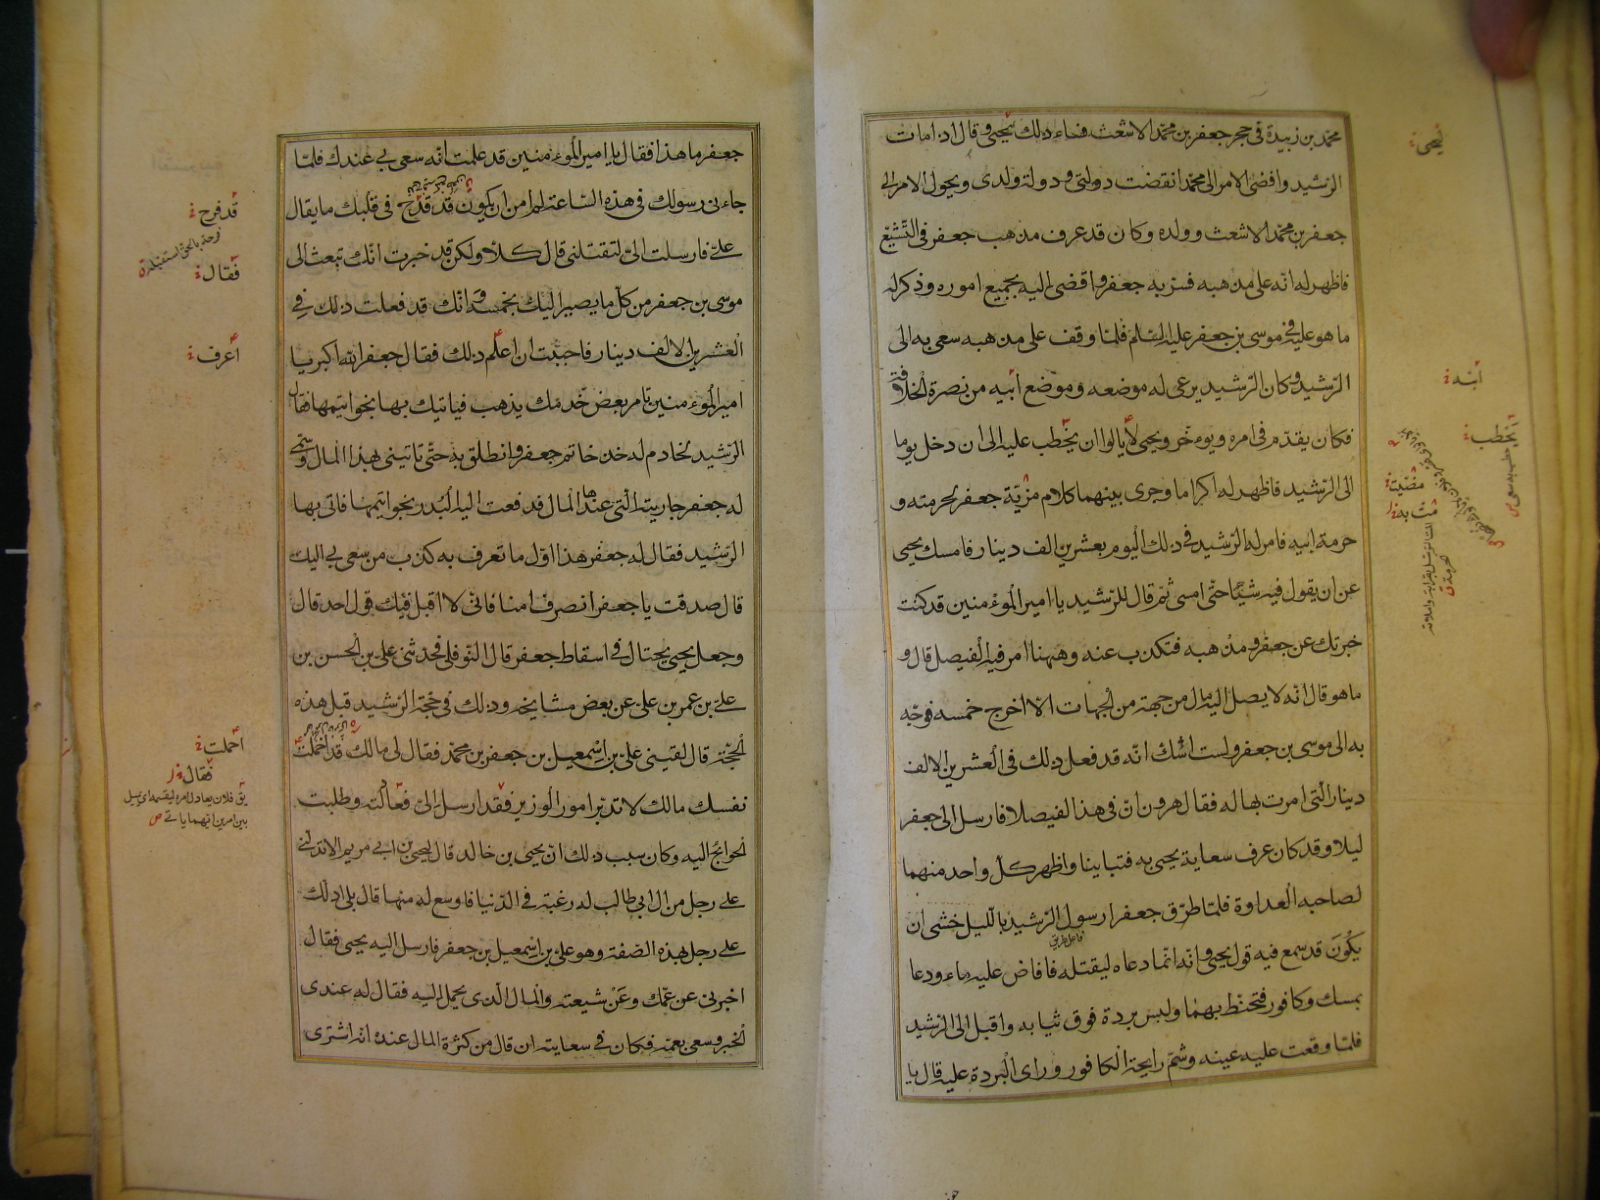 محمد بن زبيدة في حجر جعفر بن محمد الاشعث فساء ذلك يحيى وقال اذا مات
الرشيد وافضى الامر الى محمد انقضت دولتي ودولة ولدي ويحول الامر الى
جعفر بن محمد الاشعث وولده وكان قد عرف مذهب جعفر في التشيع
فاظهر له انه على مذهبه فسر به جعفر وافضى اليه بجميع اموره وذكر له
ما هو عليه في موسى بن جعفر عليه السلم فلما وقف على مذهبه سعى به الى
الرشيد وكان الرشيد يرعى له موضعه وموضع ابيه من نصرة الخلافة
فكان يقدم في امره ويوخر ويحيى لا يالوا ان يخطب عليه الى ان دخل يوما
الى الرشيد فاظهر له اكراما وجرى بينهما كلام مزية جعفر لحرمته و
حرمة ابيه فامر له الرشيد في ذلك اليوم بعشرين الف دينار فامسك يحيى
عن ان يقول فيه شيئا حتى امسى ثم قال للرشيد يا امير المؤمنين قد كنت
خبرتك عن جعفر ومذهبه فتكذب عنه وههنا امر فيه الفيصل قال و
ما هو قال انه لا يصل اليه مال من جهة من الجهات الا اخرج خمسه فوجه
به الى موسى بن جعفر ولست اشك انه قد فعل ذلك في العشرين الالف
دينار التي امرت بها له فقال هرون ان في هذا لفيصلا فارسل الى جعفر
ليلا وقد كان عرف سعاية يحيى به فتباينا واظهر كل واحد منهما
لصاحبه العداوة فلما طرق جعفرا رسول الرشيد بالليل خشي ان
يكون قد سمع فيه قول يحيى وانه انما دعاه ليقتله فافاض عليه ماء ودعا
بمسك وكافور فتحنط بهما ولبس بردة فوق ثيابه واقبل الى الرشيد
فلما وقعت عليه عينه وشم رايحة الكافور وراى البردة عليه قال يا
يحيى
ابنه
يخطب
جعفر ما هذا فقال يا امير المؤمنين قد علمت انه سعى بي عندك فلما
جاءني رسولك في هذه الساعة لم امن ان يكون قد قدح في قلبك ما يقال
علي فارسلت الي لتقتلني قال كلا ولكن قد خبرت انك تبعث الى
موسى بن جعفر من كل ما يصير اليك بخمسه وانك قد فعلت ذلك في
العشرين الالف دينار فاحببت ان اعلم ذلك فقال جعفر الله اكبر يا
امير المؤمنين تامر بعض خدمك يذهب فياتيك بها بخواتيمها فقال
الرشيد لخادم له خذ خاتم جعفر وانطلق به حتى تاتيني بهذا المال وسمى
له جعفر جاريته التي عندها المال فدفعت اليه البدر بخواتيمها فاتى بها
الرشيد فقال له جعفر هذا اول ما تعرف به كذب من سعى بي اليك
قال صدقت يا جعفر انصرف امنا فاني لا اقبل فيك قول احد قال
وجعل يحيى يحتال في اسقاط جعفر قال النوفلي فحدثني علي بن الحسن بن
علي بن عمر بن علي عن بعض مشايخه وذلك في حجة الرشيد قبل هذه
الحجة قال لقيني علي بن اسمعيل بن جعفر بن محمد فقال لي مالك قد اخملت
نفسك مالك لا تدبر امور الوزير فقد ارسل الي فعادلته وطلبت
الحوائج اليه وكان سبب ذلك ان يحيى بن خالد قال ليحيى بن ابي مريم الا تدلني
على رجل من ال ابي طالب له رغبة في الدنيا فاوسع له منها قال بلى ادلك
على رجل بهذه الصفة وهو علي بن اسمعيل بن جعفر فارسل اليه يحيى فقال
اخبرني عن عمك وعن شيعته والمال الذي يحمل اليه فقال له عندي
الخبر وسعى بعمه فكان في سعايته ان قال من كثرة المال عنده انه اشترى
قد فرح
فقال
اعرف
احملت
فقال